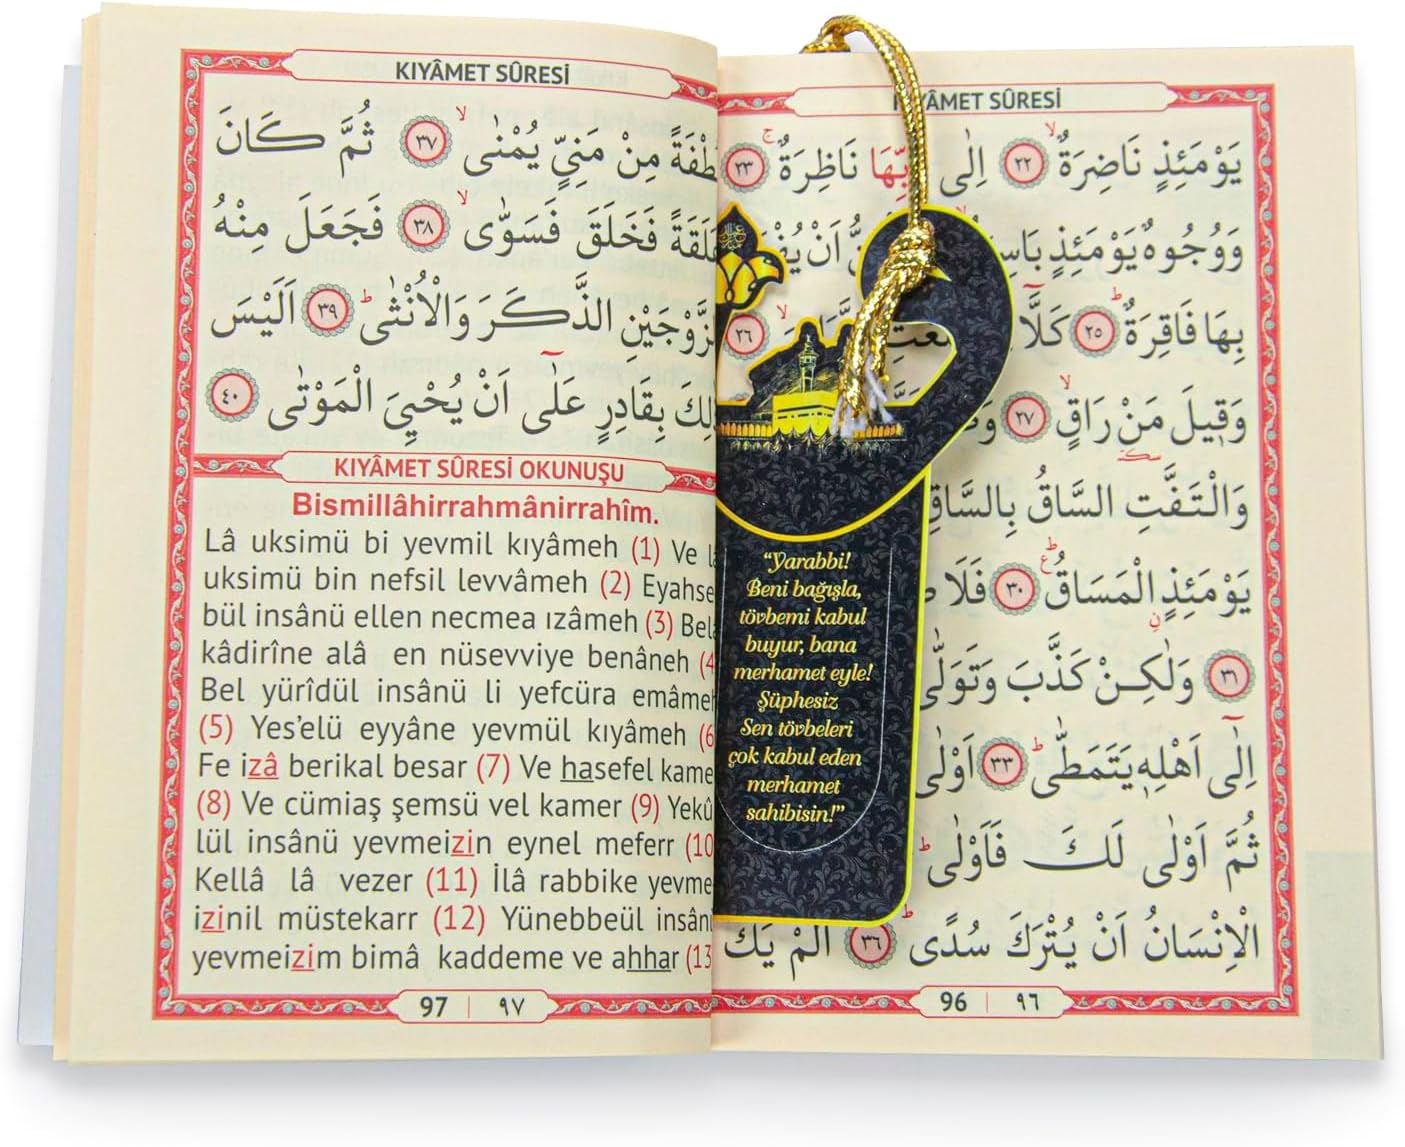 KIYÂMET SÛRESİ
يَوْمَئِذٍ نَاضِرَةٌ ﴿٢٢﴾ اِلٰى رَبِّهَا نَاظِرَةٌ ﴿٢٣﴾
وَوُجُوهٌ يَوْمَئِذٍ
بِهَا فَاقِرَةٌ ﴿٢٥﴾ كَلَّٓا ﴿٢٦﴾
وَق۪يلَ مَنْ رَاقٍ ﴿٢٧﴾
وَالْتَفَّتِ السَّاقُ بِالسَّاقِ
يَوْمَئِذٍ الْمَسَاقُ ﴿٣٠﴾ فَلَا
﴿٣١﴾ وَلٰكِنْ كَذَّبَ وَتَوَلّٰى
اِلٰٓى اَهْلِه۪ يَتَمَطّٰى ﴿٣٣﴾ اَوْلٰى
ثُمَّ اَوْلٰى لَكَ فَاَوْلٰى
الْاِنْسَانُ اَنْ يُتْرَكَ سُدًى ﴿٣٦﴾ اَلَمْ يَكُ
96 | ٩٦
“Yarabbi!
Beni bağışla,
tövbemi kabul
buyur, bana
merhamet eyle!
Şüphesiz
Sen tövbeleri
çok kabul eden
merhamet
sahibisin!”
KIYÂMET SÛRESİ
مِنْ مَنِيٍّ يُمْنٰى ﴿٣٧﴾ ثُمَّ كَانَ
فَخَلَقَ فَسَوّٰى ﴿٣٨﴾ فَجَعَلَ مِنْهُ
الذَّكَرَ وَالْاُنْثٰى ﴿٣٩﴾ اَلَيْسَ
بِقَادِرٍ عَلٰٓى اَنْ يُحْيِيَ الْمَوْتٰى ﴿٤٠﴾
KIYÂMET SÛRESİ OKUNUŞU
Bismillâhirrahmânirrahîm.
Lâ uksimü bi yevmil kıyâmeh (1) Ve
uksimü bin nefsil levvâmeh (2) Eyahse
bül insânü ellen necmea ızâmeh (3) Bel
kâdirîne alâ en nüsevviye benâneh (4
Bel yürîdül insânü li yefcüra emâmeh
(5) Yes’elü eyyâne yevmül kıyâmeh (6
Fe izâ berikal besar (7) Ve hasefel kame
(8) Ve cümiaş şemsü vel kamer (9) Yekû
lül insânü yevmeizin eynel meferr (10
Kellâ lâ vezer (11) İlâ rabbike yevme
izinil müstekarr (12) Yünebbeül insân
yevmeizim bimâ kaddeme ve ahhar (13
97 | ٩٧